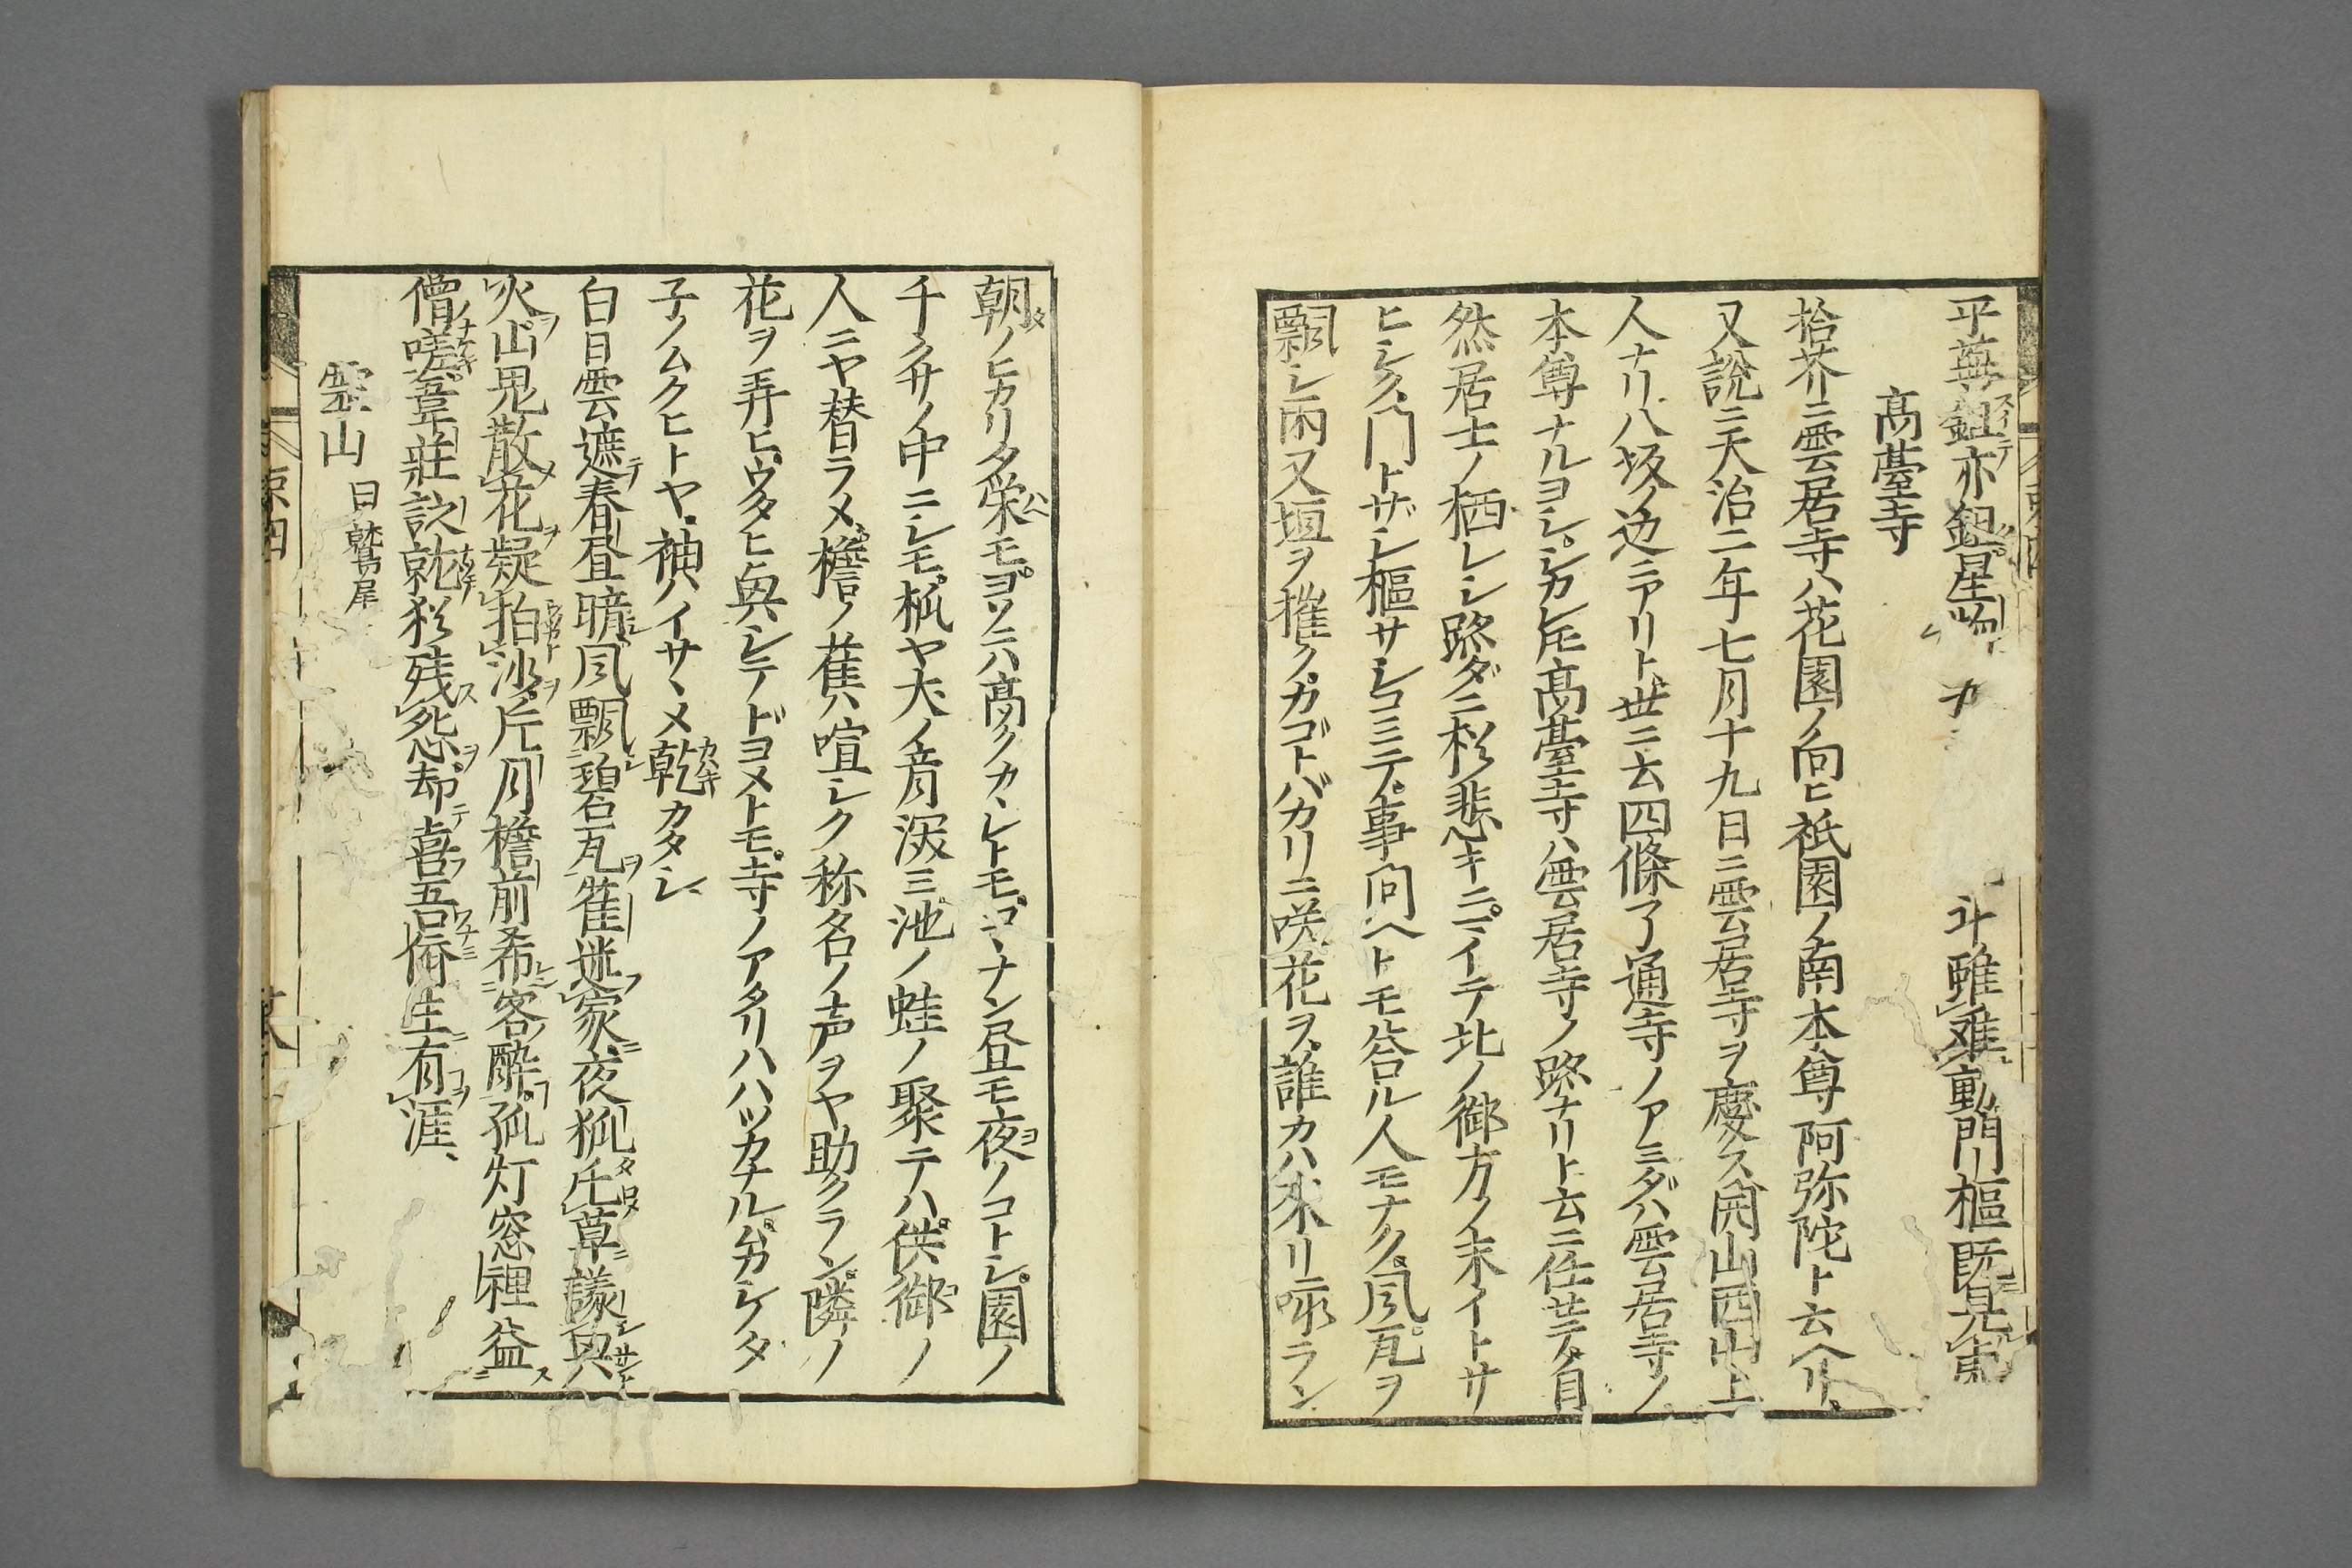 平蕪鉏亦鉏星 斗雖難動門樞既見
高臺寺
拾芥ニ雲居寺ハ花園ノ向ヒ祇園ノ南本尊阿弥陀ト云ヘリ
又説ニ天治二年七月十九日ニ雲居寺ヲ慶ス開山西山上
人ナリ八坂ノ辺ニアリト世ニ云四條了通寺ノアミダハ雲居寺ノ
本尊ナルヨシシカレ𪜈高臺寺ハ雲居寺ノ跡ナリト云ニ任セテ自
然居士ノ栖レシ跡ダニ杉悲キニマイテ北ノ御方ノ末イトサ
ヒシク門トザシ樞サシコミテ事問ヘトモ答ル人モナク風瓦ヲ
飄シ雨又垣ヲ摧クカゴトバカリニ咲花ヲ誰カハ来リ詠ラン
朝ノヒカリタ栄モヨソニハ高クカヽレトモコヽナン昼モ夜ノコトシ園ノ
千クサノ中ニシモ狐ヤ犬ノ音深ミ池ノ蛙ノ聚テハ供御ノ
人ニヤ替ラメ檐ノ萑ハ喧シク称名ノ声ヲヤ助クラン隣ノ
花ヲ弄ヒウタヒ興シテノドヨメトモ寺ノアタリハハツカナルムカシケタ
子ノムクヒトヤ神ハイサヽメ乾カタシ
白日雲遮春昼暗風飄碧瓦萑迷家夜狐 草 興
火山 散花疑拍沙片月檐前希客酔孤灯窓裡益
僧嗟韋荘 就 残怨却喜吾儕生有涯
霊山 日鷲尾